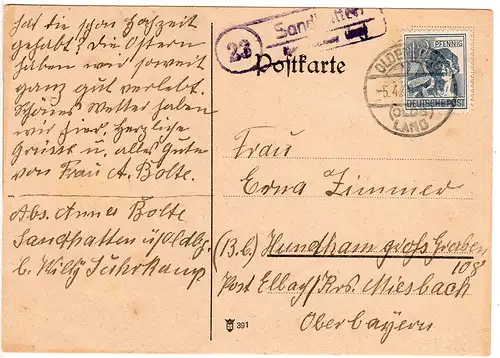 hat die schon Hochzeit
gehabt? Die Ostern
haben wir soweit
ganz gut verlebt.
Schönes Wetter haben
wir hier. Herzliche
Grüsse u. alles Gute
von Frau A. Bolte.
Abs. Annes Bolte
Sandhatten ü/Oldbg.
b. Willy Suhrkamp
23
Sandhatten
Postkarte
12 PFENNIG
DEUTSCHE POST
OLDE
-5.4.4
(OLDB)
LAND
Frau
Erna Zimmer
(13.b) Hundham gross Graben
108
Post Elbach/Krs. Miesbach
Oberbayern
391